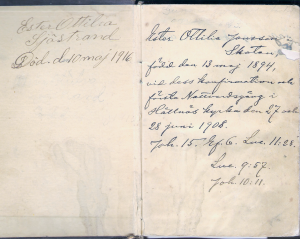 Ester Ottilia
Sjöstrand
Död. den 10 maj 1916.
Ester Ottilia Jonsson i
född den 13 maj 1894,
vid dess konfirmation och
första Nattvardsgång i
Hällnäs kyrka den 27 och
28 juni 1908.
Joh. 15. Ef. 6. Luc. 11:28.
Luc. 9:57.
Joh. 10:11.